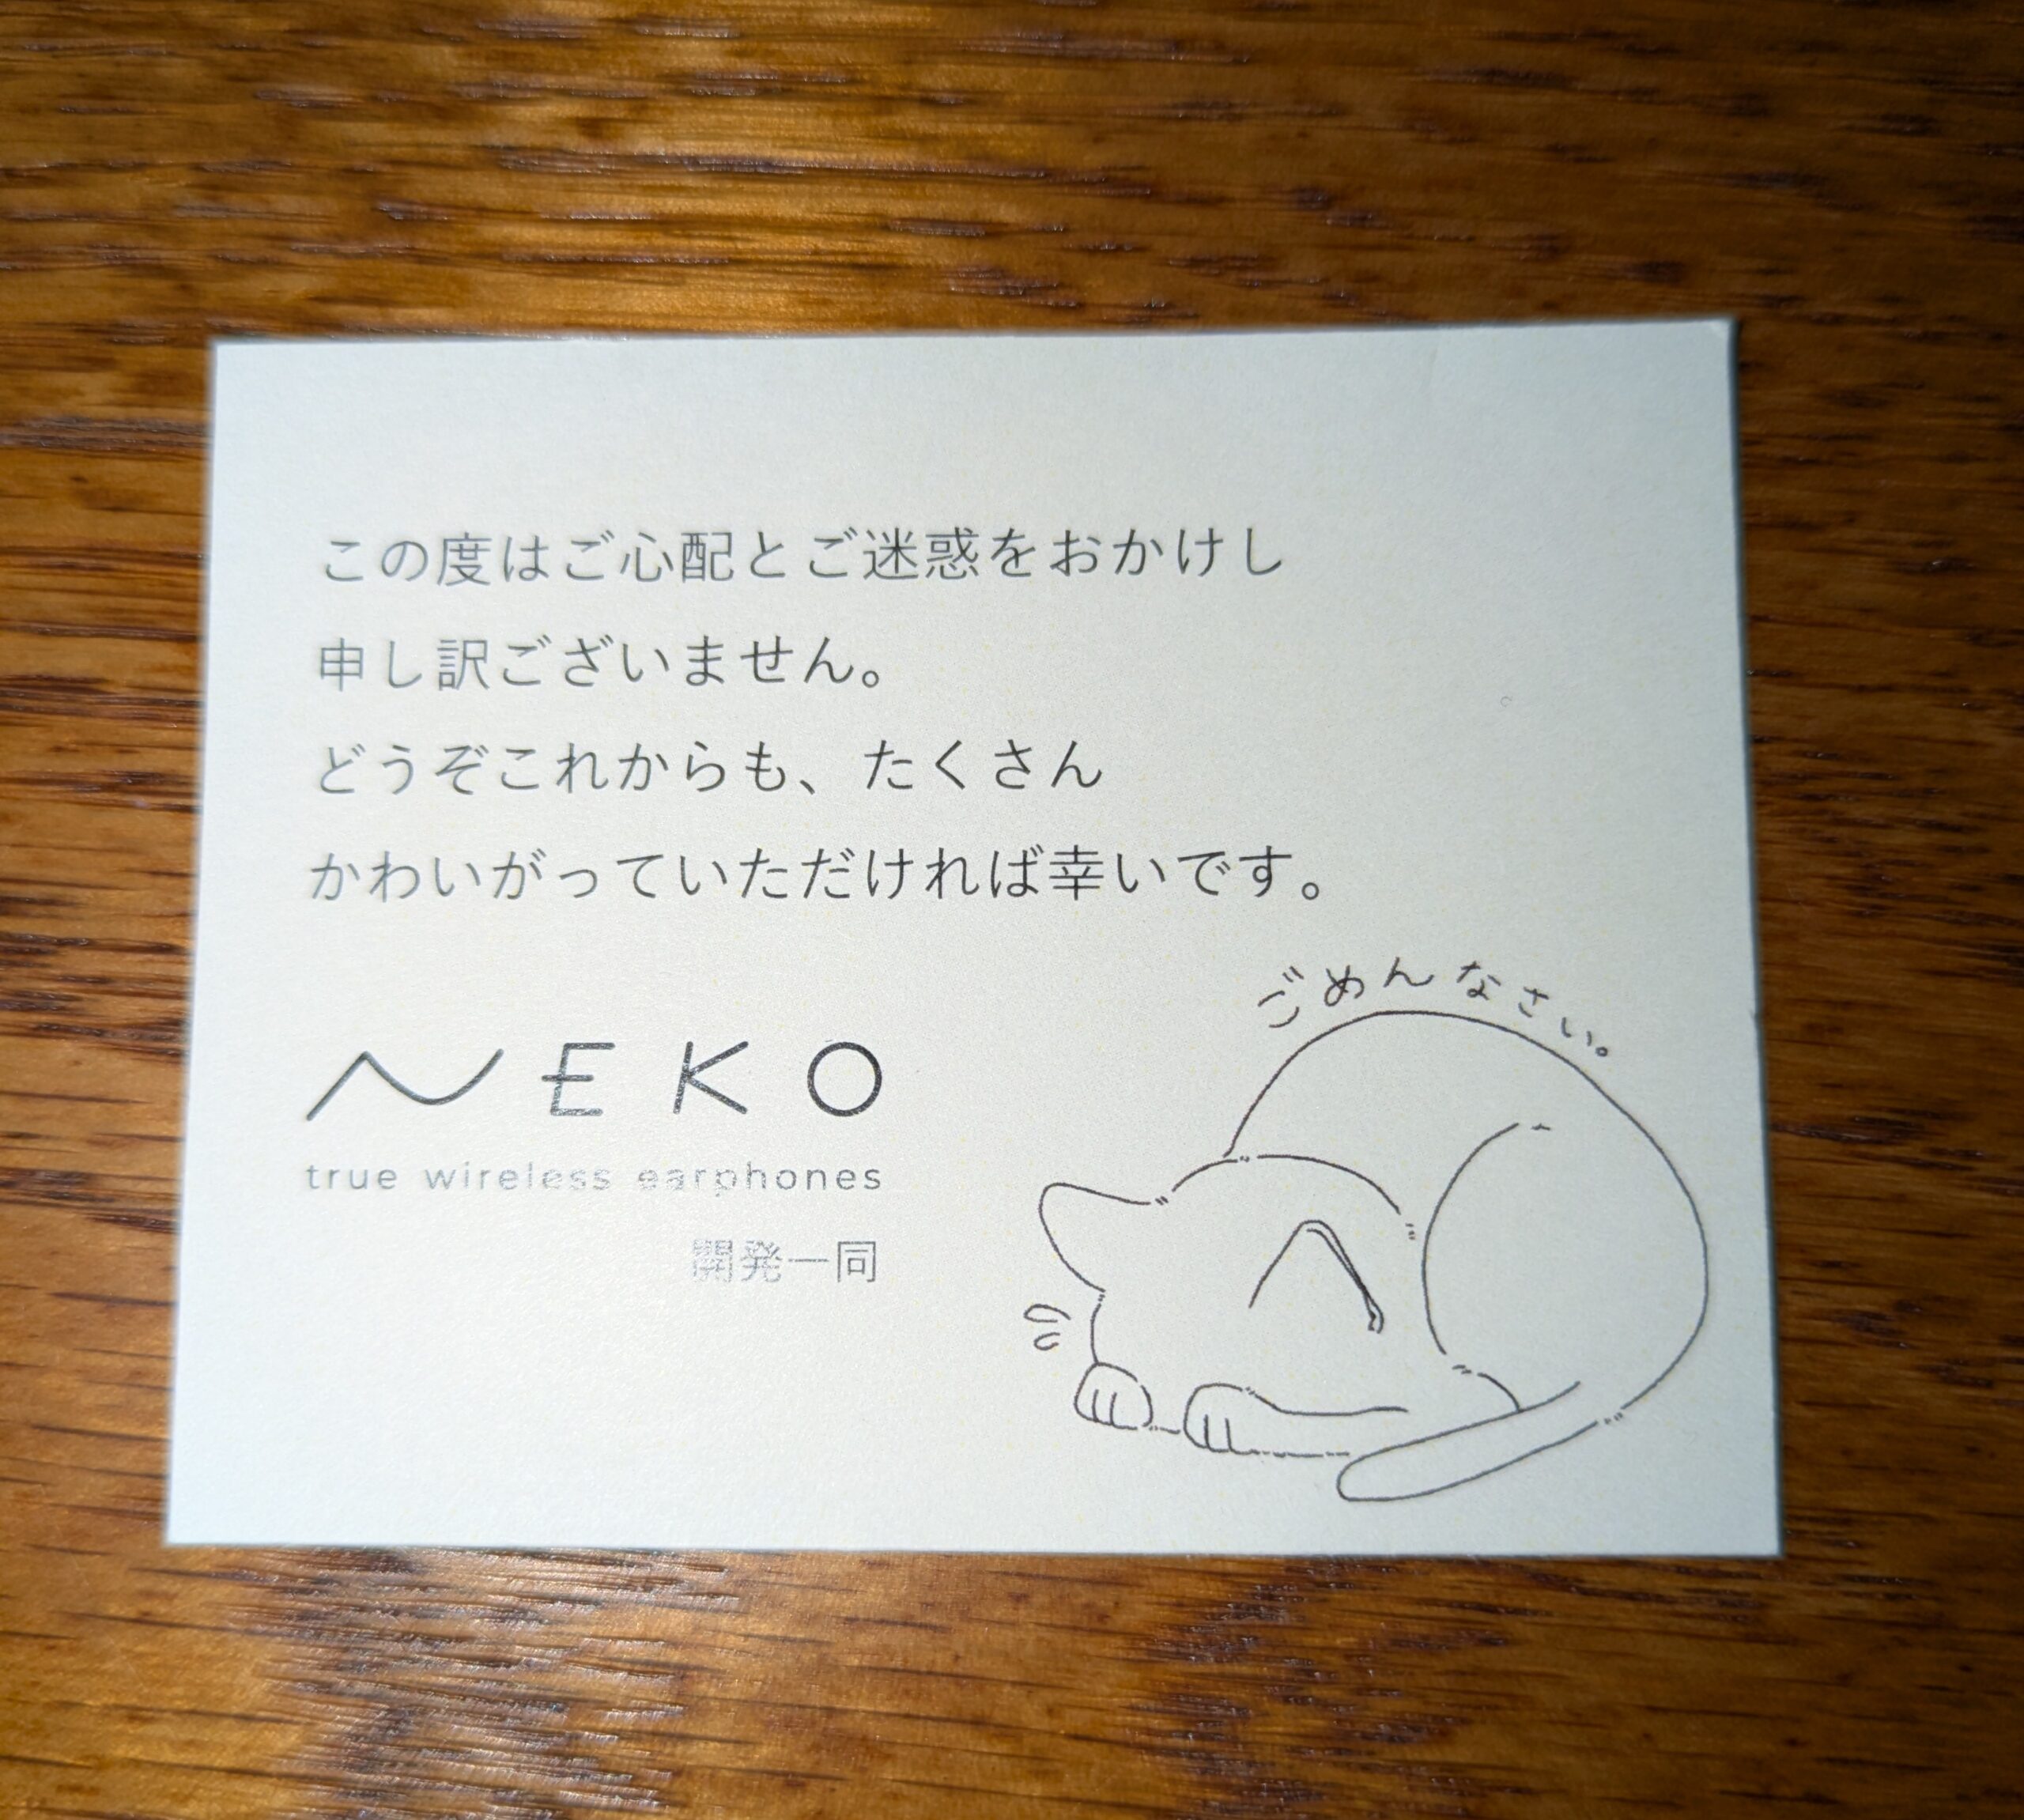 この度はご心配とご迷惑をおかけし
申し訳ございません。
どうぞこれからも、たくさん
かわいがっていただければ幸いです。
ごめんなさい。
NEKO
true wireless earphones
開発一同